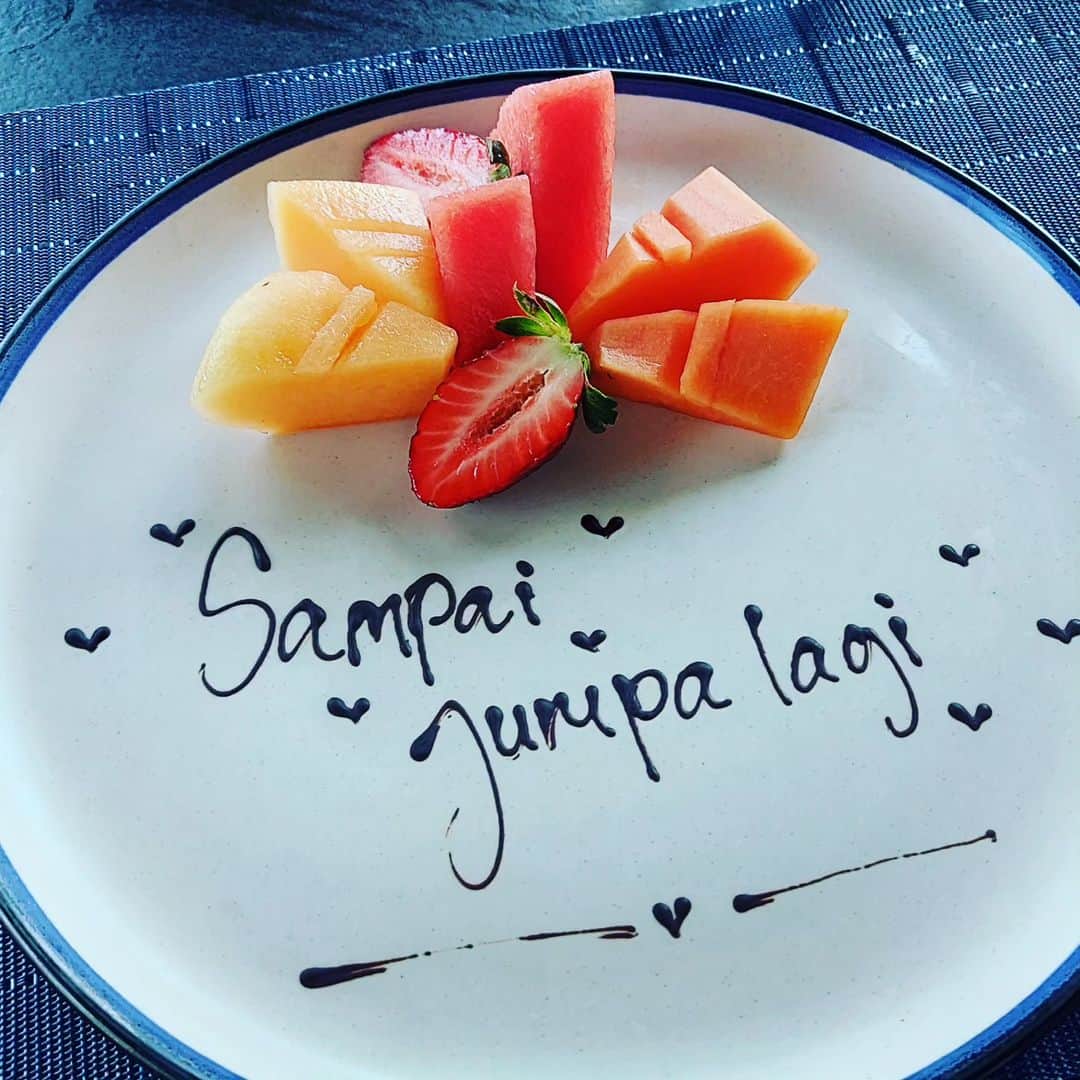 Sampai
jumpa lagi